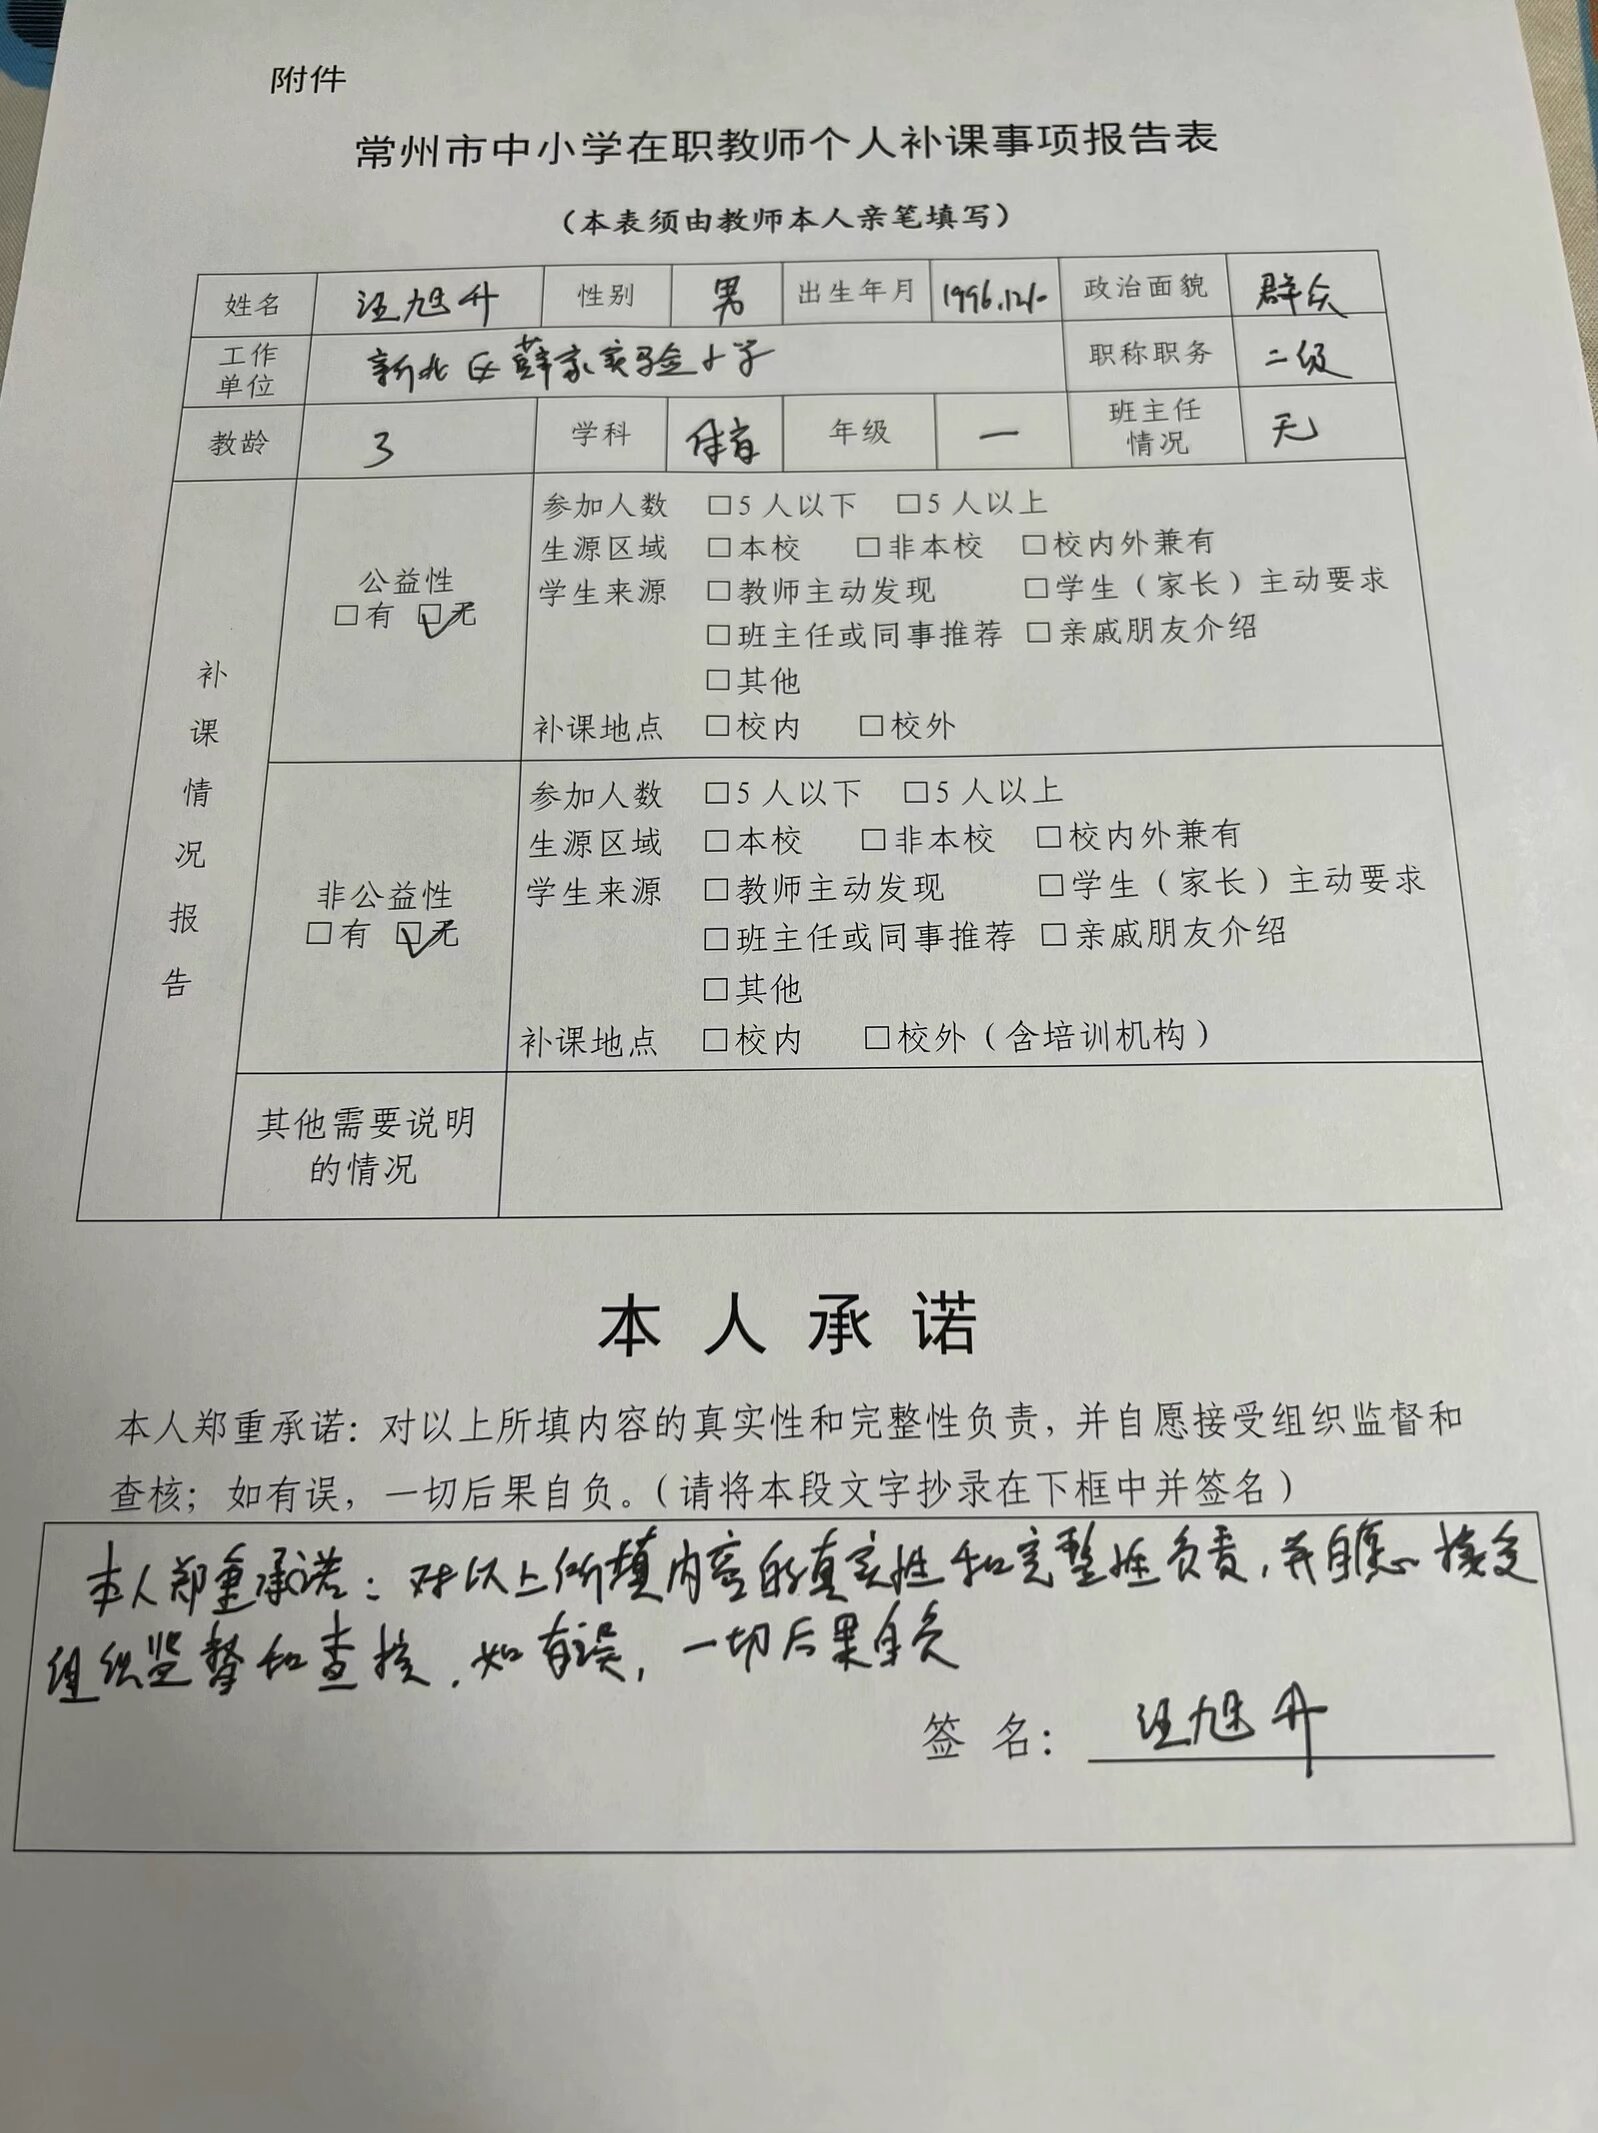 附件
常州市中小学在职教师个人补课事项报告表
（本表须由教师本人亲笔填写）
姓名 汪旭升 性别 男 出生年月 1996.12 政治面貌 群众
工作单位 新北区薛家实验小学 职称职务 二级
教龄 3 学科 体育 年级 一 班主任情况 无
补课情况报告
公益性
□有 ☑无
参加人数 □5人以下 □5人以上
生源区域 □本校 □非本校 □校内外兼有
学生来源 □教师主动发现 □学生（家长）主动要求
□班主任或同事推荐 □亲戚朋友介绍
□其他
补课地点 □校内 □校外
非公益性
□有 ☑无
参加人数 □5人以下 □5人以上
生源区域 □本校 □非本校 □校内外兼有
学生来源 □教师主动发现 □学生（家长）主动要求
□班主任或同事推荐 □亲戚朋友介绍
□其他
补课地点 □校内 □校外（含培训机构）
其他需要说明
的情况
本人承诺
本人郑重承诺：对以上所填内容的真实性和完整性负责，并自愿接受组织监督和
查核；如有误，一切后果自负。（请将本段文字抄录在下框中并签名）
本人郑重承诺：对以上所填内容的真实性和完整性负责，并自愿接受
组织监督和查核．如有误，一切后果自负
签名：汪旭升